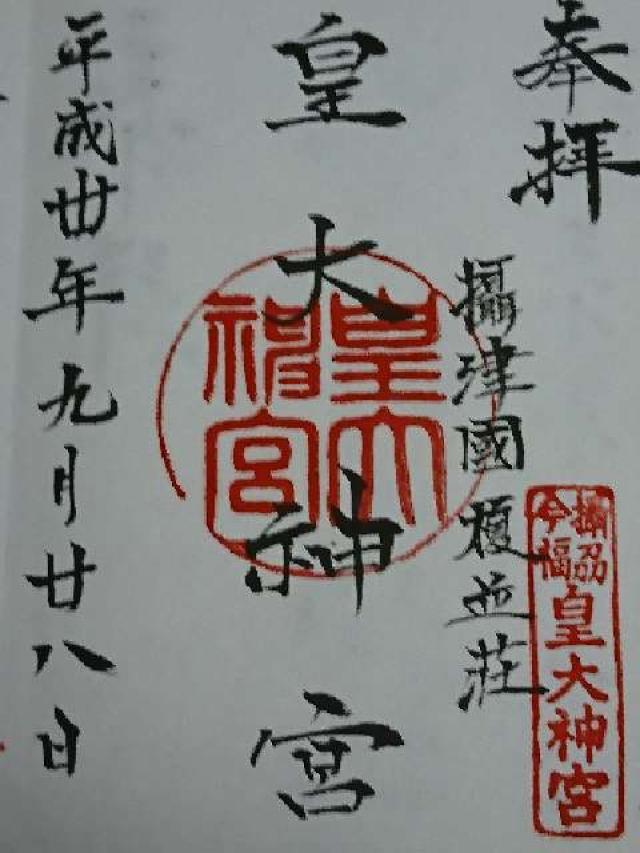 奉拝
攝津國榎並荘
皇大神宮
皇大神宮
攝刕今福
皇大神宮
平成丗年九月廿八日